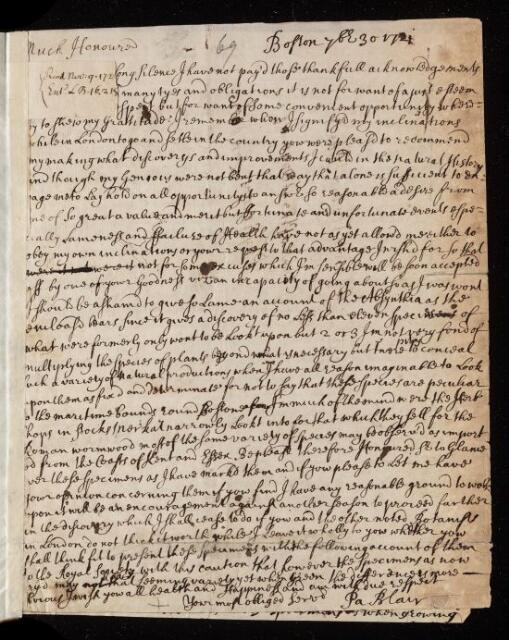 Much Honoured 69 Boston 7br 30 1721
Read Nov: 9. 1721 long silence I have not pay'd those thankfull acknowledgements
Ent: L.B. 16. 215 many tyes and obligations it is not for want of a just esteem
respect but for want of some convenient opportunity wherby
to shew my gratitude. I remember when I signifyd my inclinations
while in London to go and setle in the country you were pleas'd to recommend
my making what discoverys and improvements I could in the natural History
and though my Genious were not bent that way that alone is sufficient to en
gage me to Lay hold on all opportunity to answer so reasonable a desire from
one of so great a value and merit but fortunate and unfortunate events espe
cially Lameness and failure of Health have not as yet allowd me either to
obey my own inclinations or your request to that advantage I wishd for so that
were it not for some excuses which I'm sensible will be soon accepted
off by one of your Goodness viz an incapacity of going about so as I was wont
I should be ashamd to give so Lame an account of the Absynthia as the
enclosed bears since it gives a discovery of no Less than eleven species of
what were formerly only wont to be Lookt upon but 2 or 3. I'm not very fond of
multiplying the species of plants beyond what is necessary but I must conceal
such a variety of Natural productions when I have all reason imaginable to Look
upon them as fixd and determinate for not to say that these species are peculiar
to the maritime bounds round Bostone for Inn much of them and were the Herb
shops in Bocks Merkat narrowly Lookt into for that which they sell for the
Roman wormwood most of the same variety of species may be observ'd as import
ed from the coasts of Kent and Essex. Be pleasd Therefore Honoured Sr to Glance
over these specimens as I have markd them and if you please to let me have
your opinion concerning them if you find I have any reasonable ground to work
upon it will be an encouragement against another season to proceed farther
in the discovery which I shall cease to do if you and the other noted Botanists
in London do not think it worth while. I Leave it wholly to you whether you
shall think fit to present these specimens with the following account of them
to the Royal Society with this caution that however the specimens as now
dry'd may not seeming vary yet when Green the difference is more
obvious I wish you all health and Happiness and am with due respect
Your most obliged Serv
Pa Blair
when growing